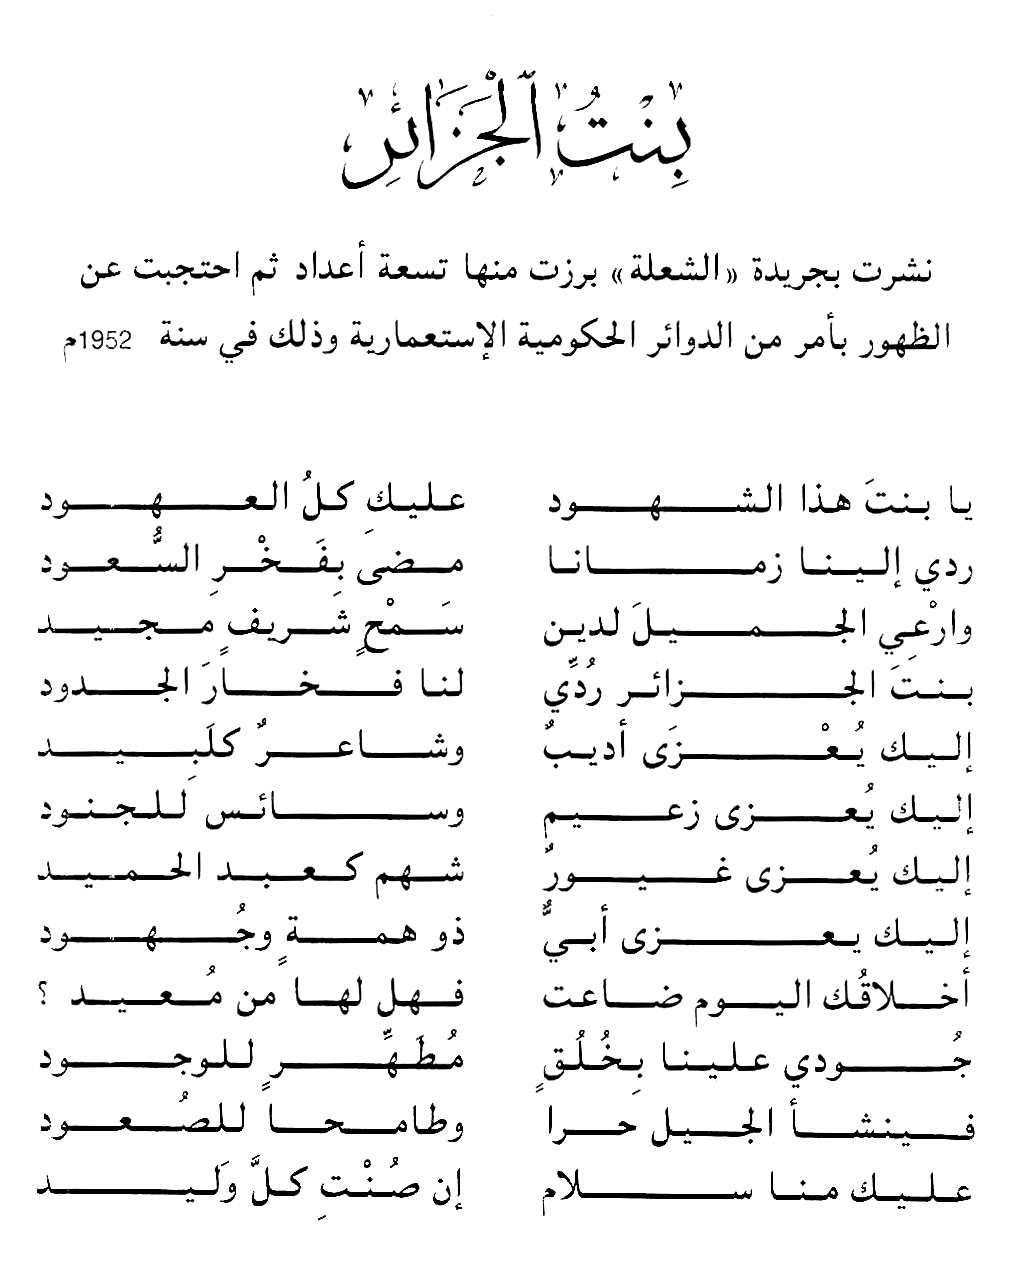 بِنْتُ الْجَزَائِرِ
نشرت بجريدة «الشعلة» برزت منها تسعة أعداد ثم احتجبت عن
الظهور بأمر من الدوائر الحكومية الإستعمارية وذلك في سنة 1952م
يا بنتَ هذا الشهود عليكِ كلُ العهود
ردي إلينا زمانا مضى بِفَخْرِ السُّعود
وارْعِي الجميلَ لدين سَمْحٍ شريفٍ مجيد
بنتَ الجزائر رُدِّي لنا فخارَ الجدود
إليك يُعْزَى أديبٌ وشاعرٌ كلَبِيد
إليك يُعزى زعيم وسائس لَلجنود
إليك يُعزى غيورٌ شهم كعبد الحميد
إليك يعزى أبيٌّ ذو همةٍ وجُهود
أخلاقُك اليوم ضاعت فهل لها من مُعيد ؟
جُودي علينا بِخُلُقٍ مُطَهِّرٍ للوجود
فينشأ الجيل حرا وطامحا للصُعود
عليك منا سلام إن صُنْتِ كلَّ وَليد